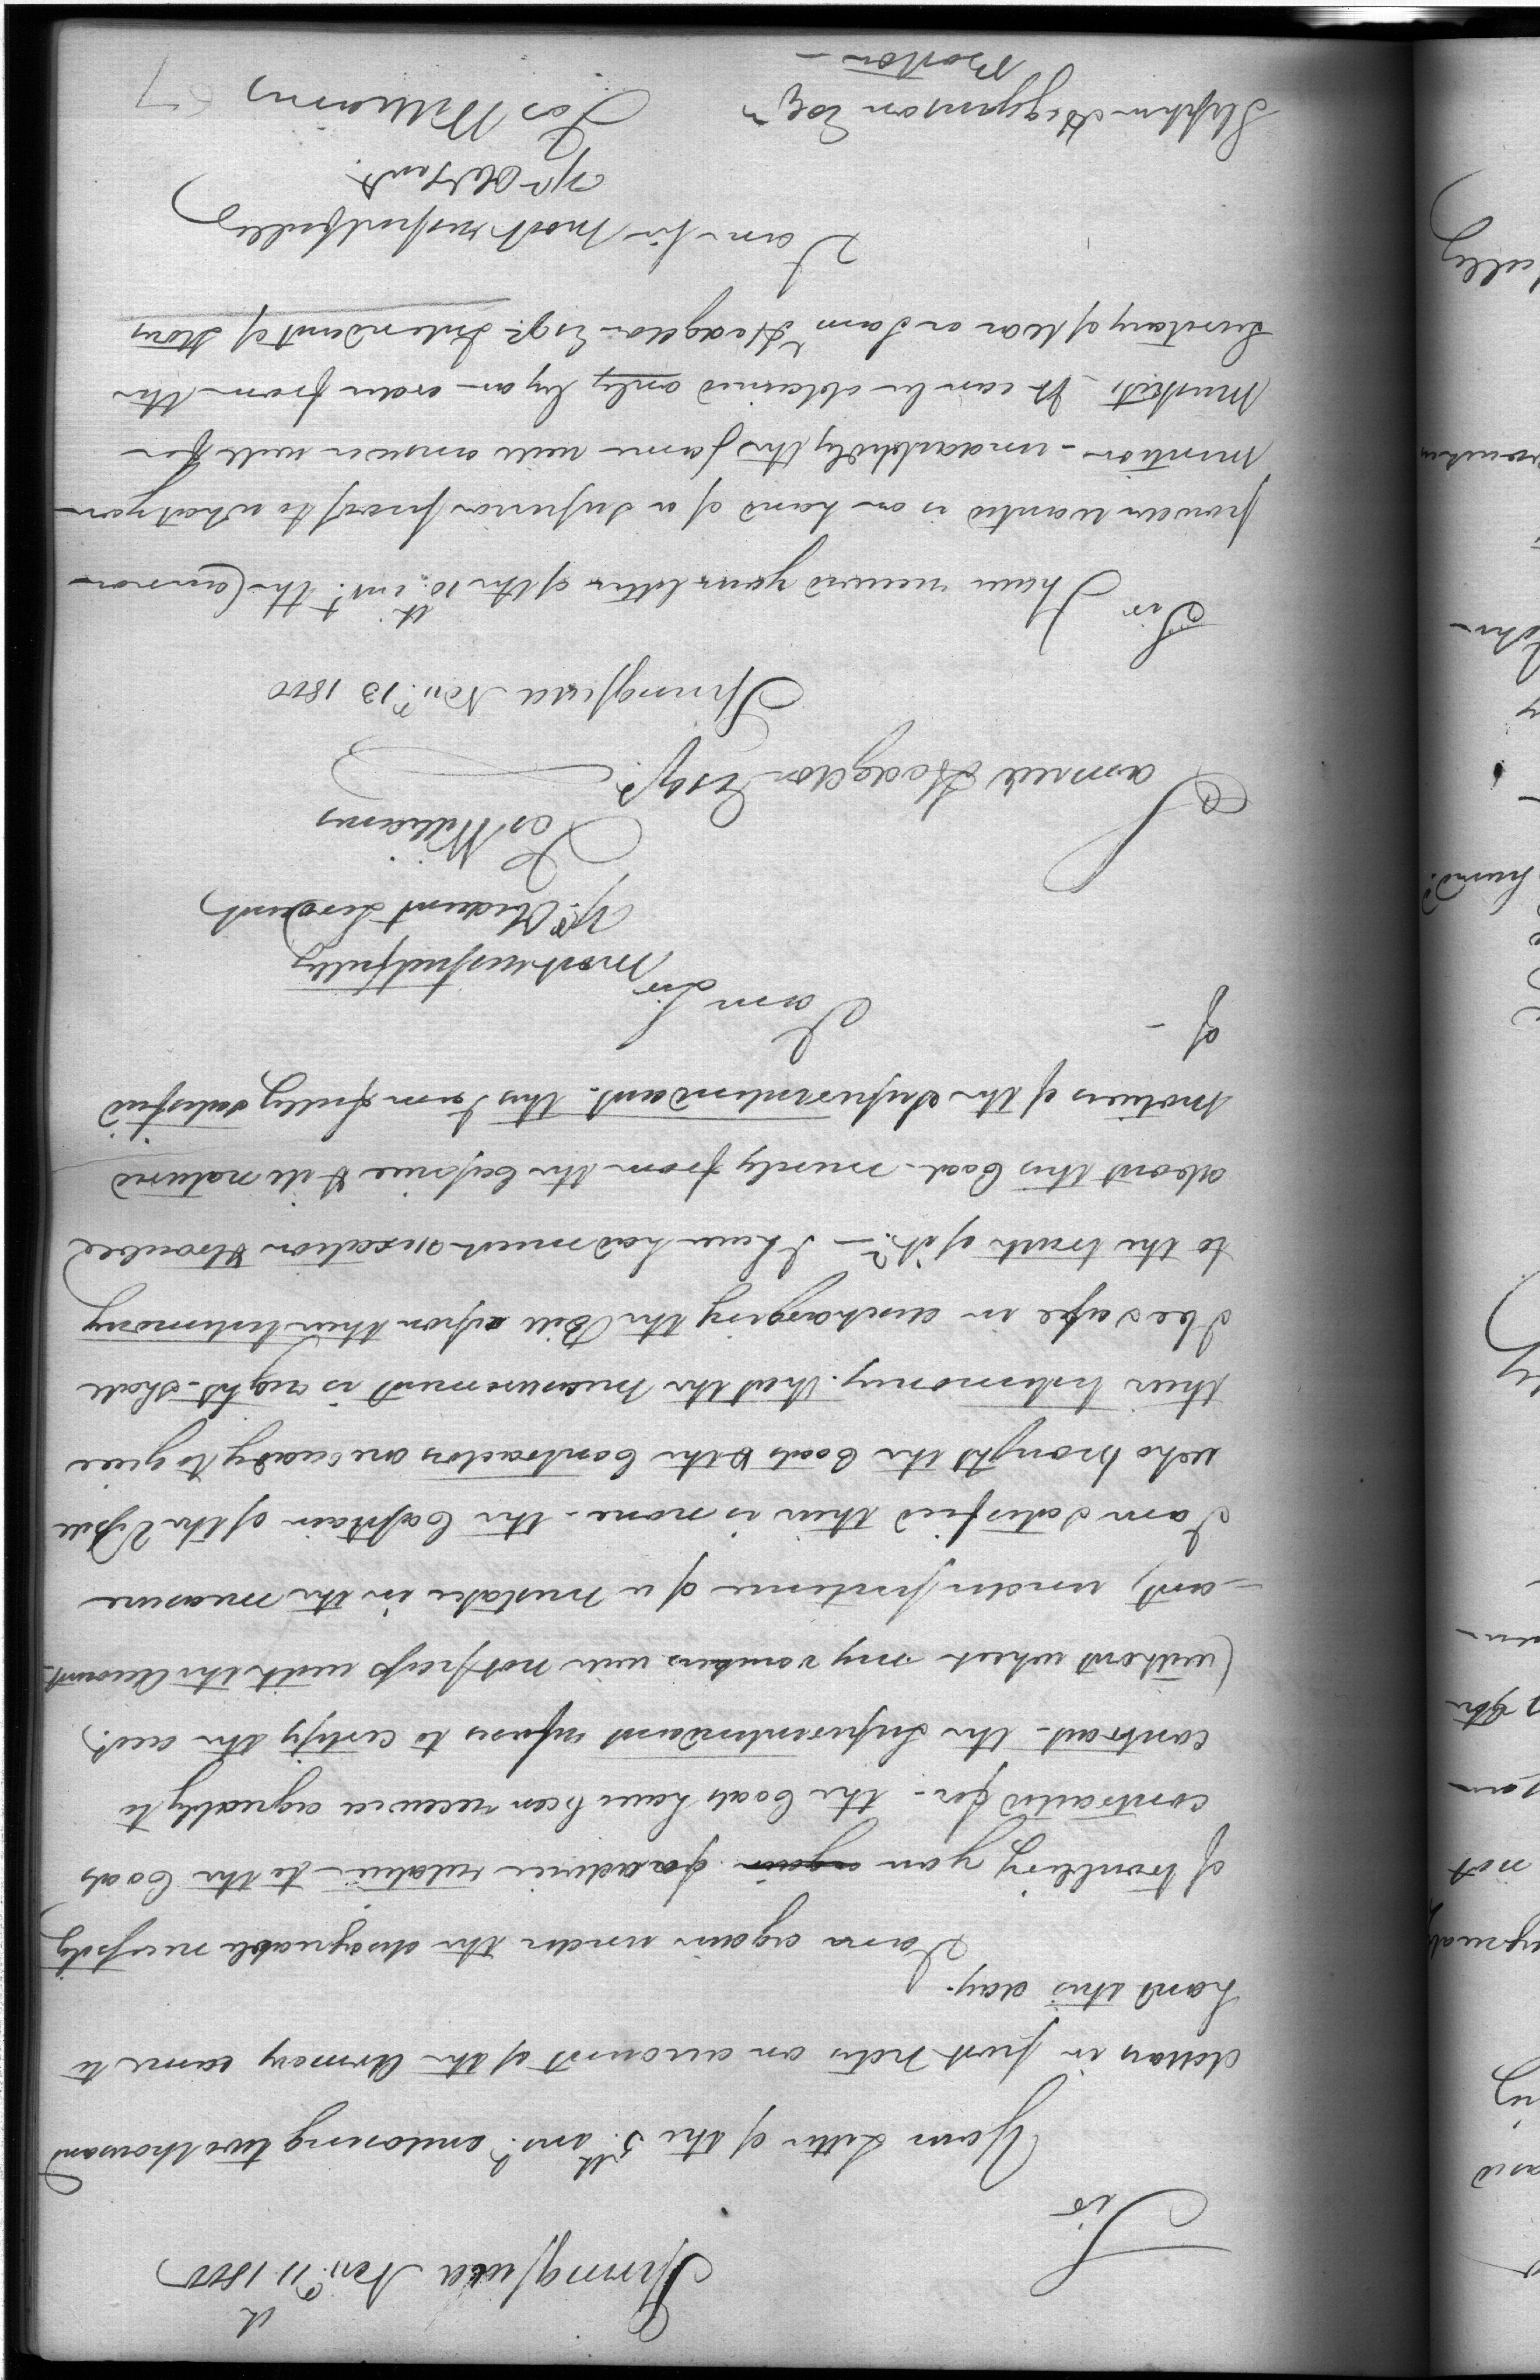 Springfield Nov.r 11 1800
Sir
Your Letter of the 5.th inst. enclosing two thousand
dollars in post notes on account of the Armory came to
hand this day.
I am again under the disagreeable necessity
of troubling you again for advice relative to the Coals
contracted for - the Coals have been received agreeably to
contract - the Superintendant refuses to certify the acct.
(without which my vouchers will not pass with the Account-
-ant) under pretence of a mistake in the measure
I am satisfied their is none - the Captain of the Vessell
who brought the Coals & the Contractors are ready to give
their testimony that the measurement is right - shall
I be safe in discharging the Bill upon their testimony
to the truth of it? - I have had much vexation & trouble
about this Coal - merely from the Caprice & ill natured
motives of the Superintendant - this I am fully satisfied
of -
I am Sir
most respectfully
Yr. Obedient Servant
Jos Williams
Samuel Hodgdon Esqr.
Springfield Nov.r 13 1800
Sir
I have received your letter of the 10.th inst. the Cannon
powder wanted is on hand of a superior proof to what you
mention - undoubtedly the same will answer well for
Muskets. It can be obtained only by an order from the
Secretary of War or Sam Hodgdon Esqr. Intendant of Stores
I am Sir most respectfully
Yr Obt Servt.
Jos Williams
Stephen Higginson Esqr
Boston -